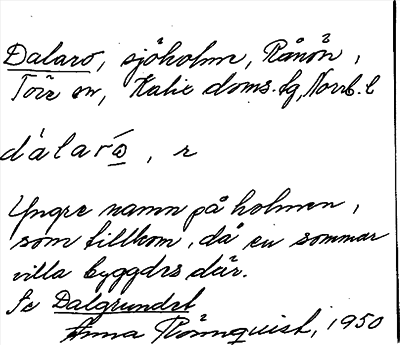 Dalarö, sjöholme, Rånön,
Töre sn, Kalix doms. fg, Norrb. l
dàlarö̀, r
Yngre namn på holmen,
som tillkom, då en sommar
villa byggdes där.
Se Dalgrundet
Anna Rönnquist, 1950